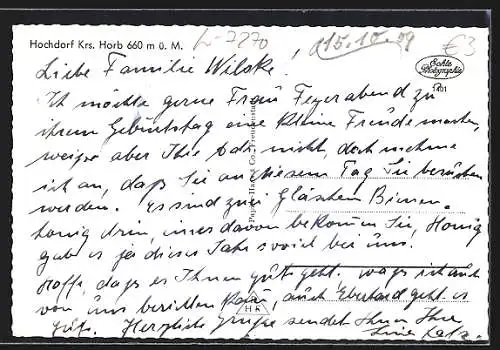 Hochdorf Krs. Horb 660 m ü. M.
L-7270
15.10.09
€3
Echte Photographie
Liebe Familie Wilske!
Ich möchte gerne Frau Feyerabend zu
ihrem Geburtstag eine kleine Freude machen,
weiss aber Ihre Adr. nicht, doch nehme
ich an, daß Sie an diesem Tag Sie besuchen
werden. Es sind zwei Gläschen Bienen-
honig drin, eines davon bekommen Sie, Honig
gab es ja dieses Jahr soviel bei uns.
Hoffe, dass es Ihnen gut geht. was ich auch
von uns berichten kann, auch Eberhard geht es
gut. Herzliche Grüße sendet Ihnen Ihre